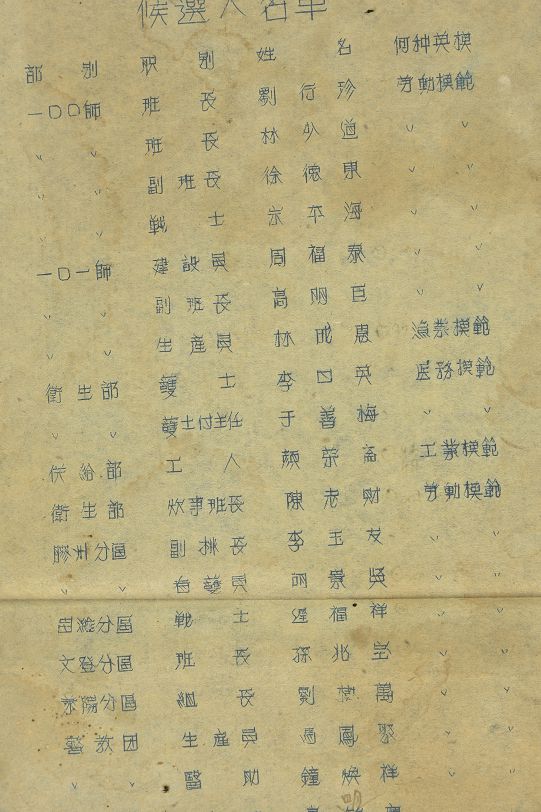 候選人名單
部別 职別 姓名 何种英模
一〇〇師 班長 劉行珍 劳動模範
〃 〃 班長 林 道 〃 〃
〃 〃 副班長 徐德東 〃 〃
〃 〃 戰士 宗平海 〃 〃
一〇一師 建設員 周福泰 〃 〃
〃 〃 副班長 高明 〃 〃
〃 〃 生產員 林成惠 漁業模範
衛生部 護士 李 英 医務模範
〃 〃 護士付主任 于善梅 〃 〃
供給部 工人 顏榮 工業模範
衛生部 炊事班長 陳老財 劳動模範
膠州分區 副排長 李玉友 〃 〃
〃 〃 員 胡景 〃 〃
分區 戰士 遲福祥 〃 〃
文登分區 班長 孫兆 〃 〃
萊陽分區 組長 劉 萬 〃 〃
警教团 生產員 馮鳳聚 〃 〃
〃 〃 醫助 鐘煥祥 〃 〃